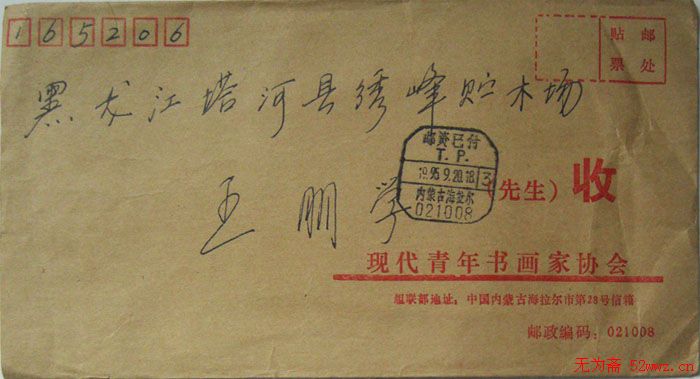 165206
贴邮
票处
黑龙江塔河县绣峰贮木场
邮资已付
T.P.
1995.9.20.18
3
内蒙古海拉尔
021008
王朋学(先生)收
现代青年书画家协会
组联部地址:中国内蒙古海拉尔市第28号信箱
邮政编码:021008
无为斋 52wwz.cn